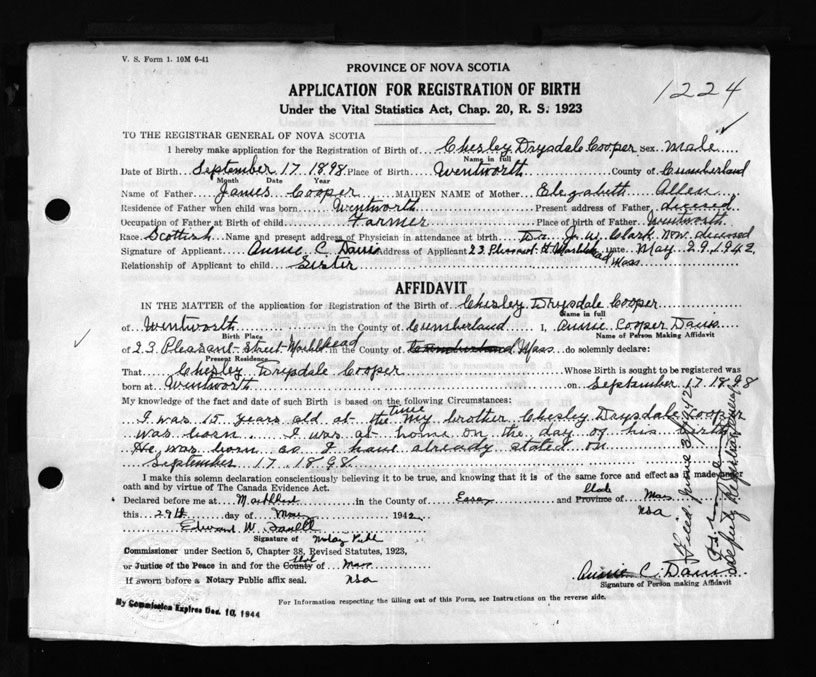 V. S. Form 1. 10M 6-41
PROVINCE OF NOVA SCOTIA
APPLICATION FOR REGISTRATION OF BIRTH
1224
Under the Vital Statistics Act, Chap. 20, R. S. 1923
TO THE REGISTRAR GENERAL OF NOVA SCOTIA
I hereby make application for the Registration of Birth of Chesley Drysdale Cooper Sex Male
Name in full
Date of Birth September 17 1898 Place of Birth Wentworth County of Cumberland
Month Date Year
Name of Father James Cooper MAIDEN NAME of Mother Elizabeth Allen
Residence of Father when child was born Wentworth Present address of Father
Occupation of Father at Birth of child Farmer Place of birth of Father Wentworth
Race Scottish Name and present address of Physician in attendance at birth Dr. J. W. Clark now
Signature of Applicant Annie C. Davis Address of Applicant 23 Pleasant St Marblehead Mass Date May 29, 1942
Relationship of Applicant to child Sister
AFFIDAVIT
IN THE MATTER of the application for Registration of the Birth of Chesley Drysdale Cooper
Name in full
of Wentworth in the County of Cumberland I, Annie Cooper Davis
Birth Place Name of Person Making Affidavit
of 23 Pleasant Street Marblehead in the County of Cumberland Mass do solemnly declare:
Present Residence
That Chesley Drysdale Cooper Whose Birth is sought to be registered was
born at Wentworth on September 17 1898
My knowledge of the fact and date of such Birth is based on the following Circumstances:
I was 15 years old at the time my brother Chesley Drysdale Cooper
was born. I was at home on the day of his birth
He was born as I have already stated on
September 17 1898.
I make this solemn declaration conscientiously believing it to be true, and knowing that it is of the same force and effect as if made under
oath and by virtue of The Canada Evidence Act.
Declared before me at Marblehead in the County of Essex and State Province of Mass
this 29th day of May 1942 USA
Edward W.
Signature of Notary Publ
Commissioner under Section 5, Chapter 38, Revised Statutes, 1923,
or Justice of the Peace in and for the County of Mass
If sworn before a Notary Public affix seal. USA
Annie C. Davis
Signature of Person making Affidavit
My Commission Expires Dec. 10, 1944
For Information respecting the filling out of this Form, see Instructions on the reverse side.
Filed June 3, 1942
Deputy Registrar General